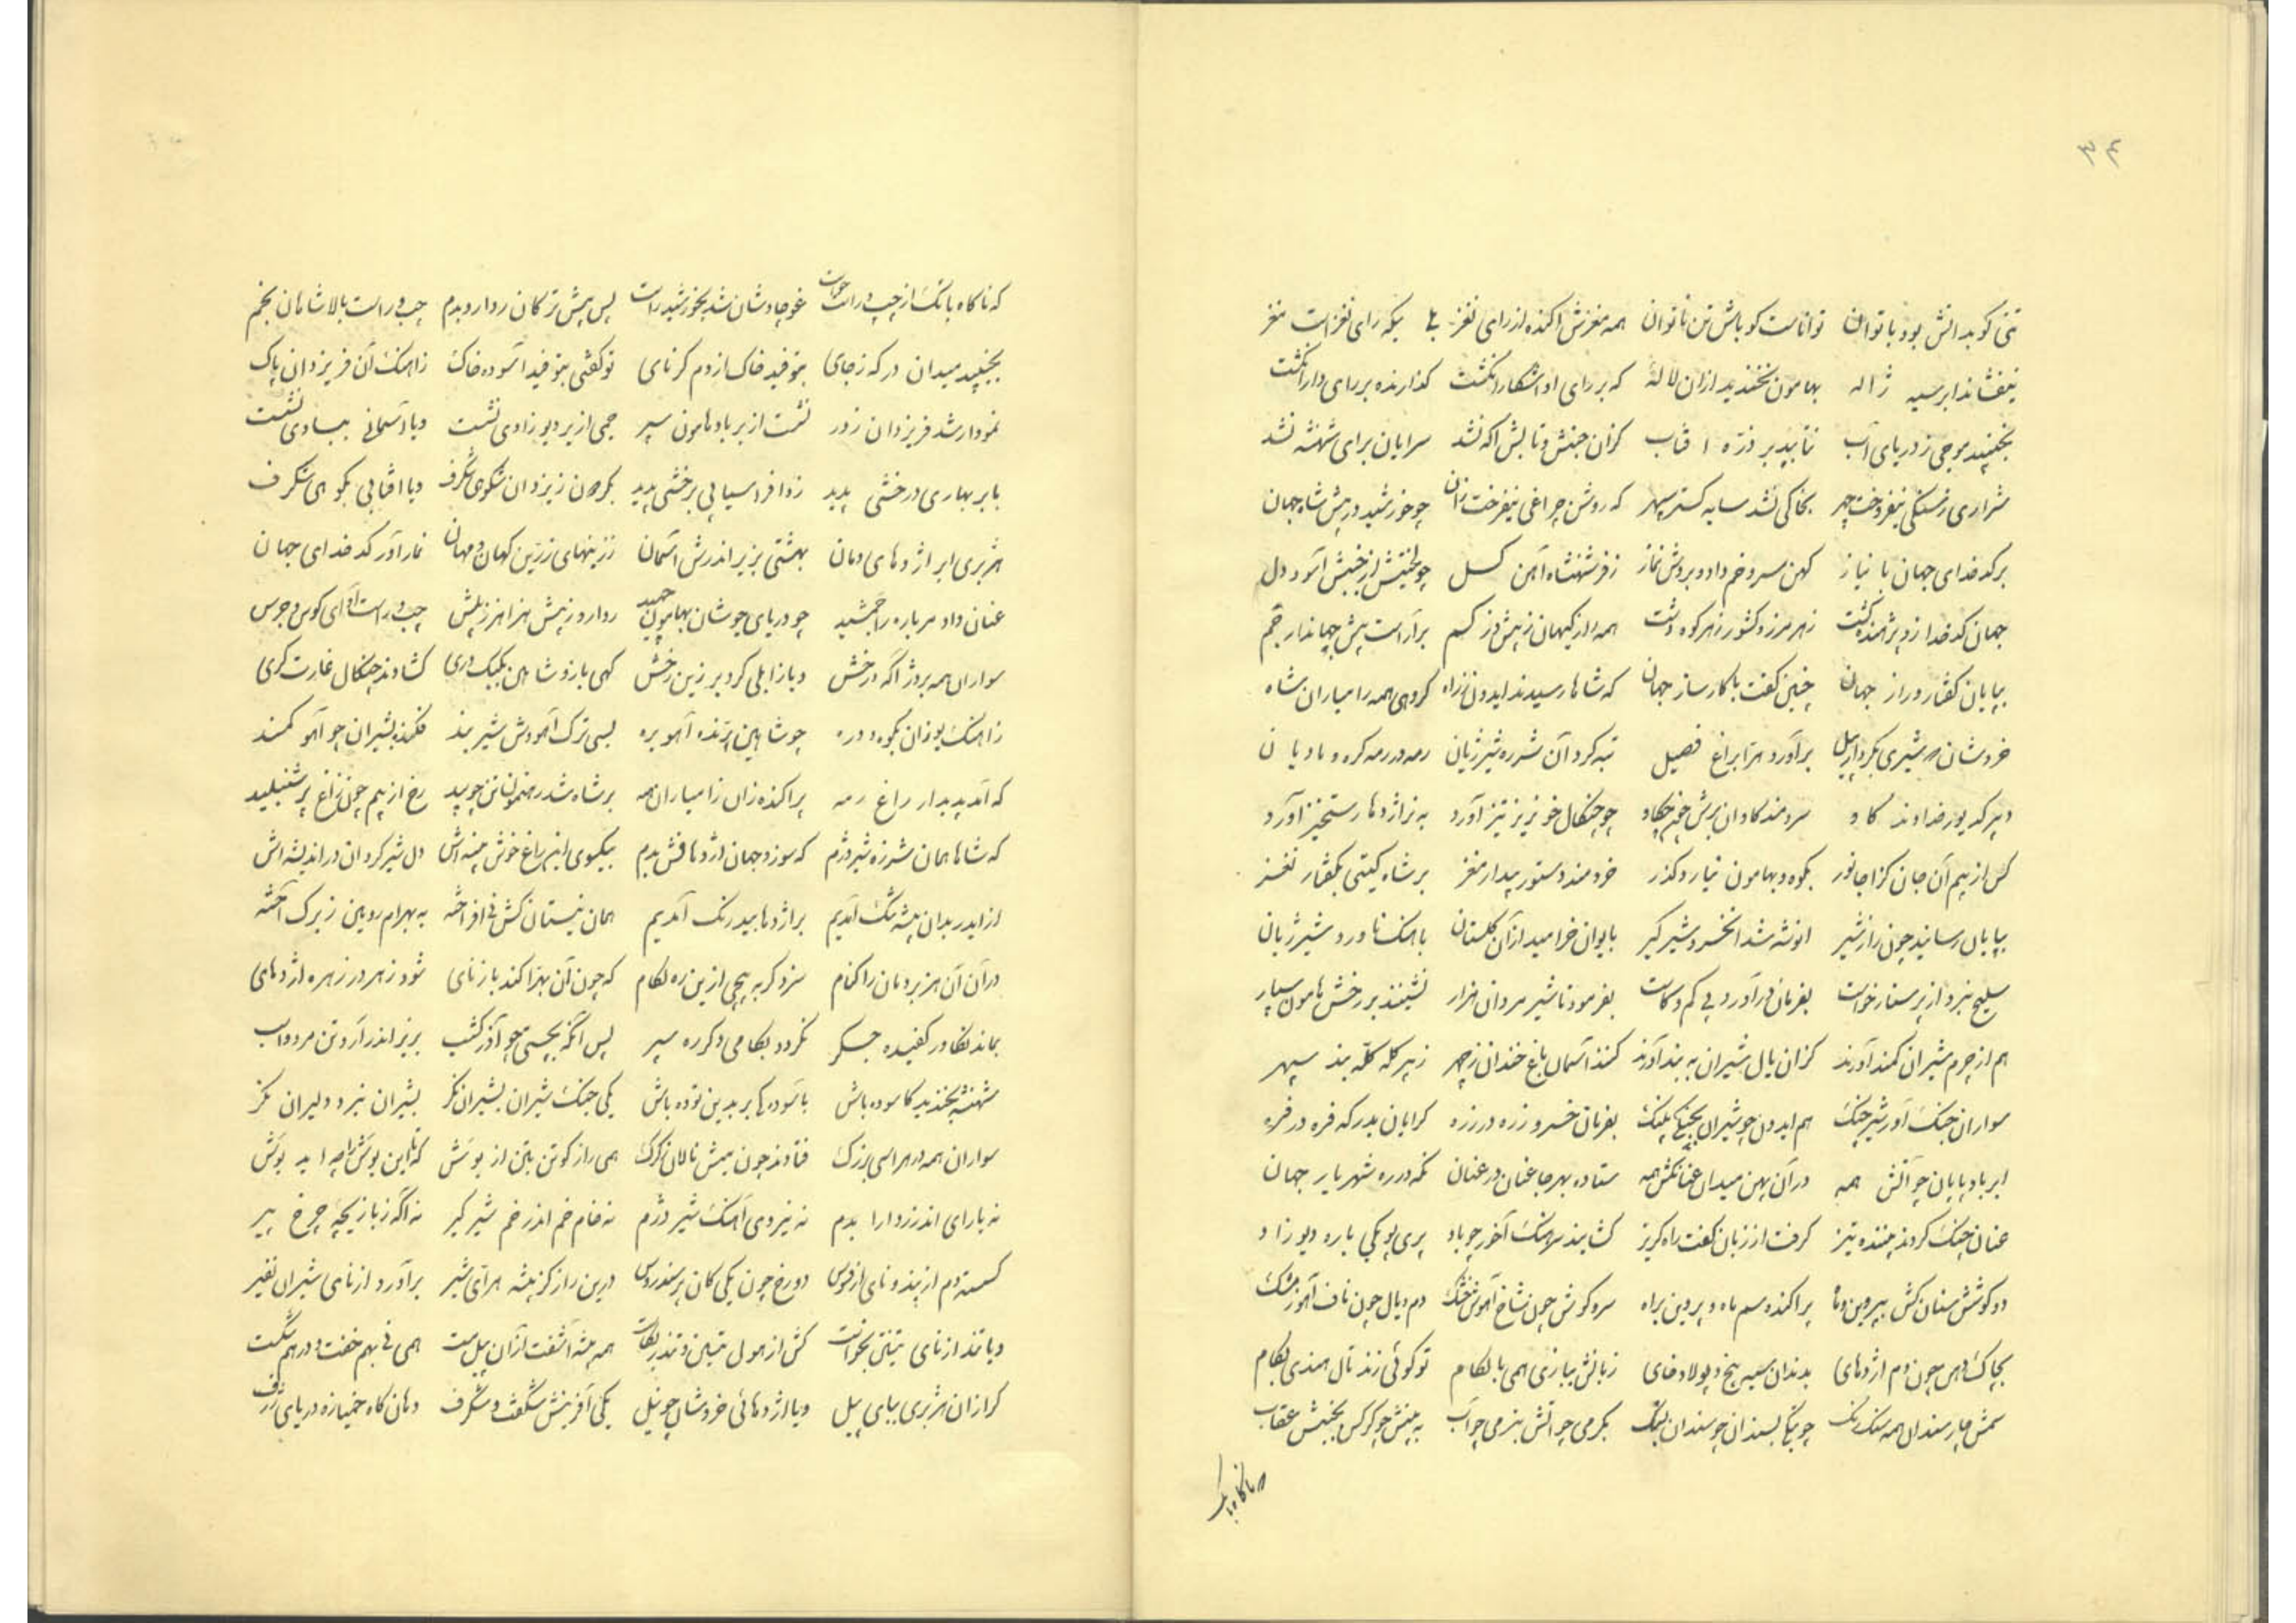 ۳۴
تنی کو بدانش بود با توان تواناست کو باش تن ناتوان همه مغزش اکنده از رای نغز یکه رای نغز است مغز
نیفشاند ابر سیه ژاله بهامون نخندید ازان لاله که بر رای او آشکارا نگشت گذارنده بر رای دارا نگشت
نجنبید موجی ز دریای آب نتابید بر ذره افتاب کزان جنبش و تابش اگه نشد سرایان برای شهنشه نشد
شراری ز سنگی نیفروخت چهر بخاکی نشد سایه گستر سپهر که روشن چراغی نیفروخت زان چو خورشید در پیش شاه جهان
بر کدخدای جهان با نیاز کهن سرو خم داد و بردش نماز ز فر شهنشاه آهن گسل چو لختیش از جنبش آسود دل
جهان کدخدا زو پژوهنده گشت ز هر مرز و کشور ز هر کوه و دشت همه راز کیهان ز بیش و ز کم براراست پیش جهاندار جم
بپایان گفتار و راز جهان چنین گفت با کارساز جهان که شاها رسیدند ایدون ز راه گروهی همه رامیاران شاه
خروشان که شیری بکردار پیل برآورد هرا براغ فصیل تبه کرد آن شرزه شیر ژیان رمه در رمه کره و مادیان
سرومند کاوان برش خم چو چنگال خونریز تیز آورد به نر اژدها رستخیز آورد
کس از بیم آن جان گزا جانور بکوه و بهامون نیارد گذر خردمند دستور بیدار مغز بر شاه گیتی بگفتار نغز
بپایان رسانید چون راز شیر انوشه شد آن خسرو شیرگیر بایوان خرامید از آن گلستان باهنگ ناورد شیر ژیان
سلیح نبرد از پرستار خواست بفرمان درآورد بی کم و کاست بفرمود تا شیر مردان هزار نشینند بر رخش هامون سپار
هم از چرم شیران کمند آورند کزان یال شیران به بند آورند کنند آسمان باغ خندان ز چهر ز پر کله کله بند سپهر
سواران جنگ آور شیر چنگ هم ایدون چو شیران بجنگ پلنگ بفرمان خسرو زره در زره گرایان بدرگه فره در فره
ابر بادپایان چو آتش همه در آن پهن میدان عنانکش همه ستاده بهر جا عنان در عنان نگه در ره شهریار جهان
عنان چنگ کردند پوینده تیز گرفت از زبان گفت راه گریز سرهنگ آخور چو باد پری پویکی باره دیو زاد
دو گوشش سنان کش بپروین و ماه پراکنده سم ماه و پروین براه سر و گوش چون شاخ آهوش خشک دم و یال چون ناف آهو ز مشک
بچاک دهن چون دم اژدهای بدندان سیه بیخ و پولاد خای زبانش ببازی همی با لگام تو گوئی زند نال هندی بکام
سمش چار سندان همه سنگ رنگ سندان چو سندان بگرمی چو آتش بنرمی چو آب به بینش چو کرکس بجنبش عقاب
که ناگاه بانک
که ناگاه بانگ از چپ و راست خواست غو چاوشان شد بخورشید راست پس پیش ترکان رداردبدم چپ و راست بالا شاهان بخم
بجنبید میدان درگه ز جای بتوفید خاک از دم کرنای تو گفتی بتوفید آسوده خاک ز آهنگ آن فر یزدان پاک
نمودار شد فر یزدان ز دور نشست از بر باد هامون سپر جمی از بر دیو زادی نشست و یا آسمانی ببادی نشست
بابر بهاری درخشی پدید زد افراسیابی برخشی پدید و یا افتابی بکوهی شگرف
هژبری ابر اژدهای دمان بهشتی بزیر اندرش آسمان ز زینهای زرین کهان و مهان نماز آور کدخدای جهان
عنان داد مر باره را جمشید چو دریای جوشان بهامون رداروز پیش هزاهز ز پس چپ و راست آوای کوس و جرس
سواران همه بر دژ آگه درخش و یا زابلی گرد بر زین رخش کهی باز و شاهین بکبک دری گشادند چنگال غارت گری
ز آهنگ یوزان بکوه و دره چو شاهین پرنده آهو بره بسی ترک آهووش شیر بند فکنده بشیران چو آهو کمند
که آمد پدیدار راغ رمه پراکنده زان رامیاران همه بر شاه شد رهنمون رخ از بیم چون زاغ پر شنبلید
که شاها همان شرزه شیر دژم که سوزد جهان اژدهافش بدم بیکسوی این راغ خوش بیشه اش دل شیر گردان در اندیشه اش
از ایدر بدان بیشه تنگ آمدیم بر اژدها بیدرنگ آمدیم همان نیستان کش نی افراخته به بهرام روبین ز برگ آخته
در آن آن هزبر دمان را کنام سزد گر به پیچی ازین ره لگام که چون آن بهرا کند باز نای شود زهر در زهره اژدهای
بماند تکاور کفیده جگر نگردد بکامی دگر ره سپر پس انگه بچستی چو آذرگشسب بزیر اندر آرد تن مرد و اسب
شهنشه بخندید کاسوده باش باسوده یکی جنگ شیران بشیران نگر بشیران نبرد دلیران نگر
سواران همه در هراسی بزرگ فتادند چون میش نالان ز گرگ
نه یارای اندرز دارا بدم نه نیروی آهنگ شیر دژم نه خام خم اندر خم شیرگیر نه آگه ز بازیچه چرخ پیر
گسسته دم از پند و نای از فوس دو رخ چون یکی کان پر سندروس درین راز کز بیشه هرای شیر برآورد از نای شیران نفیر
و یا تندر از نای تنین بخواست کش از هول تنین و تندر بکاست همه بیشه آشفت از آن پیل مست همی نی بهم خفت و در هم شکست
گرازان هژبری ببالای پیل و یا اژدهائی خروشان چو نیل یکی آفرینش شگفت و شگرف دهان گاه خمیازه دریای ژرف